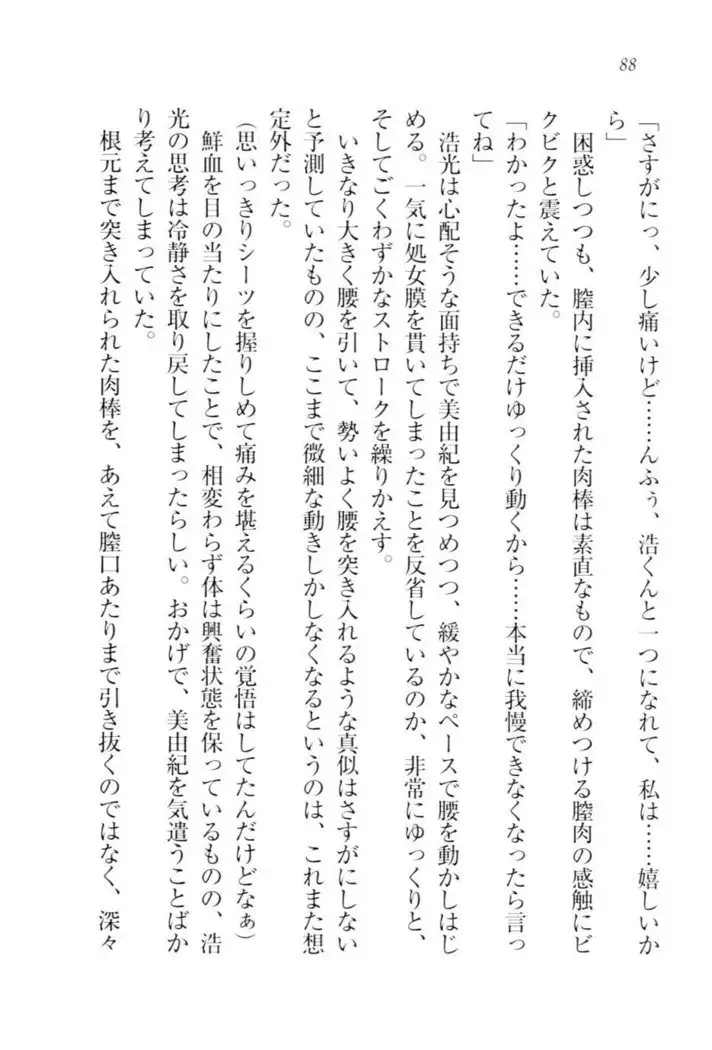 88
「さすがにっ、少し痛いけど……んふぅ、浩くんと一つになれて、私は……嬉しいか
ら」
困惑しつつも、膣内に挿入された肉棒は素直なもので、締めつける膣肉の感触にビ
クビクと震えていた。
「わかったよ……できるだけゆっくり動くから……本当に我慢できなくなったら言っ
てね」
浩光は心配そうな面持ちで美由紀を見つめつつ、緩やかなペースで腰を動かしはじ
める。一気に処女膜を貫いてしまったことを反省しているのか、非常にゆっくりと、
そしてごくわずかなストロークを繰りかえす。
いきなり大きく腰を引いて、勢いよく腰を突き入れるような真似はさすがにしない
と予測していたものの、ここまで微細な動きしかしなくなるというのは、これまた想
定外だった。
（思いっきりシーツを握りしめて痛みを堪えるくらいの覚悟はしてたんだけどなぁ）
鮮血を目の当たりにしたことで、相変わらず体は興奮状態を保っているものの、浩
光の思考は冷静さを取り戻してしまったらしい。おかげで、美由紀を気遣うことばか
り考えてしまっていた。
根元まで突き入れられた肉棒を、あえて膣口あたりまで引き抜くのではなく、深々